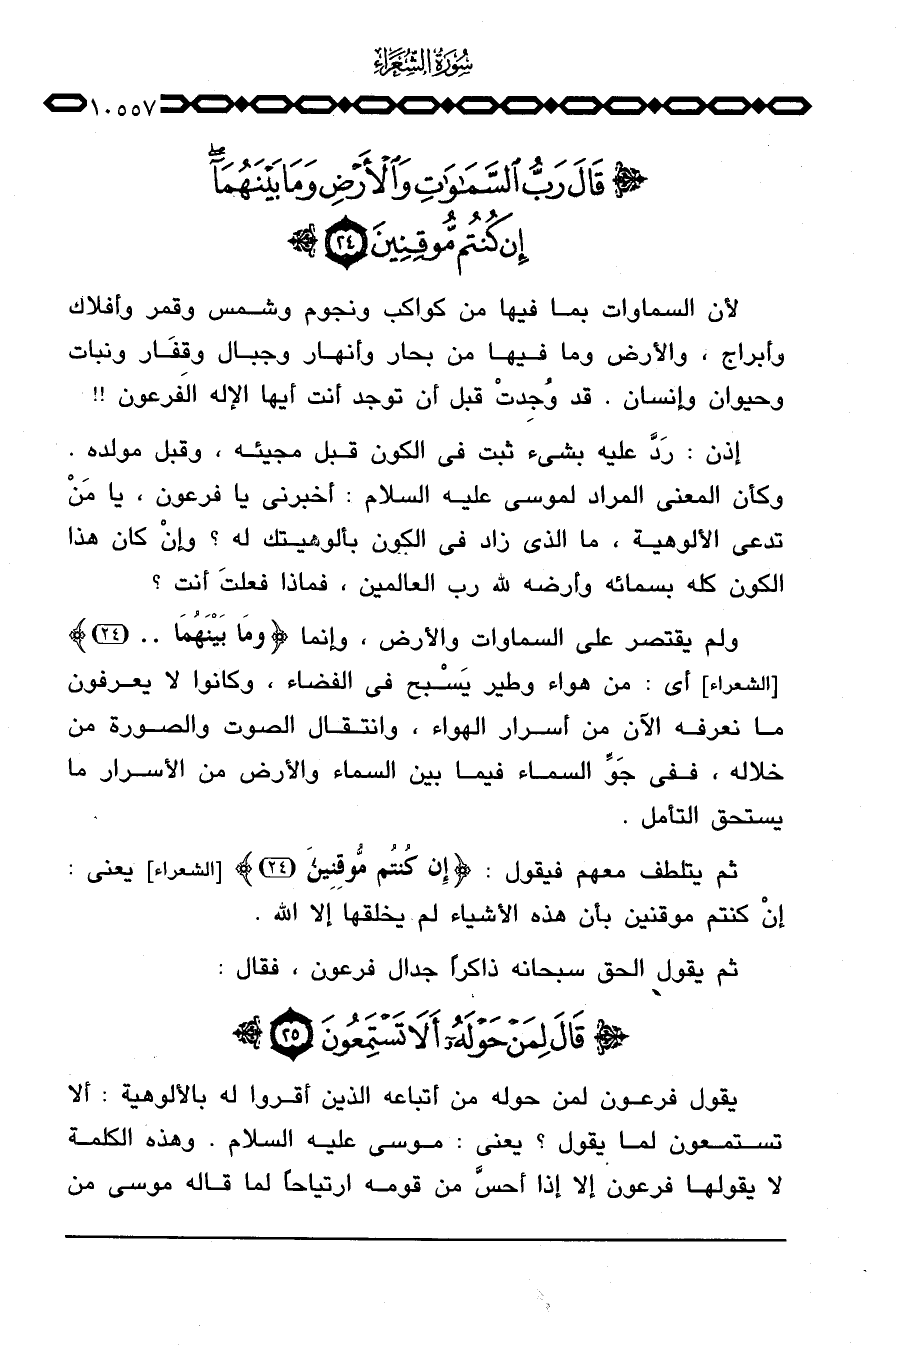 سُورَةُ الشُّعَرَاءِ
١٠٥٥٧
﴿ قَالَ رَبُّ ٱلسَّمَـٰوَٰتِ وَٱلْأَرْضِ وَمَا بَيْنَهُمَآ ۖ
إِن كُنتُم مُّوقِنِينَ ٢٤ ﴾
لأن السماوات بما فيها من كواكب ونجوم وشمس وقمر وأفلاك
وأبراج ، والأرض وما فيها من بحار وأنهار وجبال وقفَار ونبات
وحيوان وإنسان . قد وُجدتْ قبل أن توجد أنت أيها الإله الفرعون !!
إذن : رَدَّ عليه بشىء ثبت فى الكون قبل مجيئه ، وقبل مولده .
وكأن المعنى المراد لموسى عليه السلام : أخبرنى يا فرعون ، يا مَنْ
تدعى الألوهية ، ما الذى زاد فى الكون بألوهيتك له ؟ وإنْ كان هذا
الكون كله بسمائه وأرضه لله رب العالمين ، فماذا فعلتَ أنت ؟
ولم يقتصر على السماوات والأرض ، وإنما ﴿ وَمَا بَيْنَهُمَا .. (٢٤) ﴾
[الشعراء] أى : من هواء وطير يَسْبح فى الفضاء ، وكانوا لا يعرفون
ما نعرفه الآن من أسرار الهواء ، وانتقال الصوت والصورة من
خلاله ، ففى جَوِّ السماء فيما بين السماء والأرض من الأسرار ما
يستحق التأمل .
ثم يتلطف معهم فيقول : ﴿ إِن كُنتُم مُّوقِنِينَ (٢٤) ﴾ [الشعراء] يعنى :
إنْ كنتم موقنين بأن هذه الأشياء لم يخلقها إلا الله .
ثم يقول الحق سبحانه ذاكراً جدال فرعون ، فقال :
﴿ قَالَ لِمَنْ حَوْلَهُۥٓ أَلَا تَسْتَمِعُونَ ٢٥ ﴾
يقول فرعون لمن حوله من أتباعه الذين أقروا له بالألوهية : ألا
تستمعون لما يقول ؟ يعنى : موسى عليه السلام . وهذه الكلمة
لا يقولها فرعون إلا إذا أحسَّ من قومه ارتياحاً لما قاله موسى من